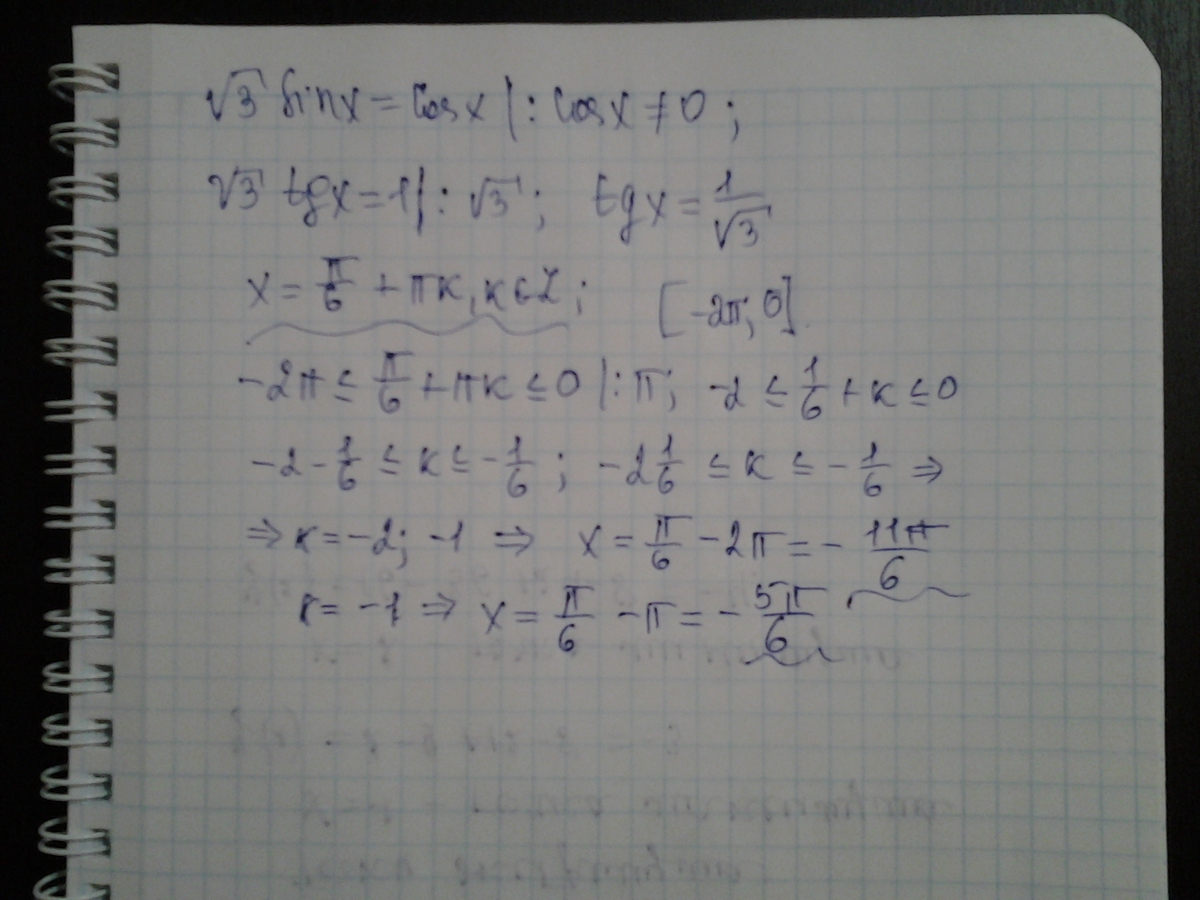 √3 sinx = cosx |: cosx ≠ 0;
√3 tgx = 1 |: √3; tgx = 1/√3
x = π/6 + πк, к∈Z; [-2π; 0].
-2π ≤ π/6 + πк ≤ 0 |: π; -2 ≤ 1/6 + к ≤ 0
-2 - 1/6 ≤ к ≤ -1/6; -2 1/6 ≤ к ≤ -1/6 ⇒
⇒ к = -2; -1 ⇒ x = π/6 - 2π = - 11π/6
к = -1 ⇒ x = π/6 - π = - 5π/6